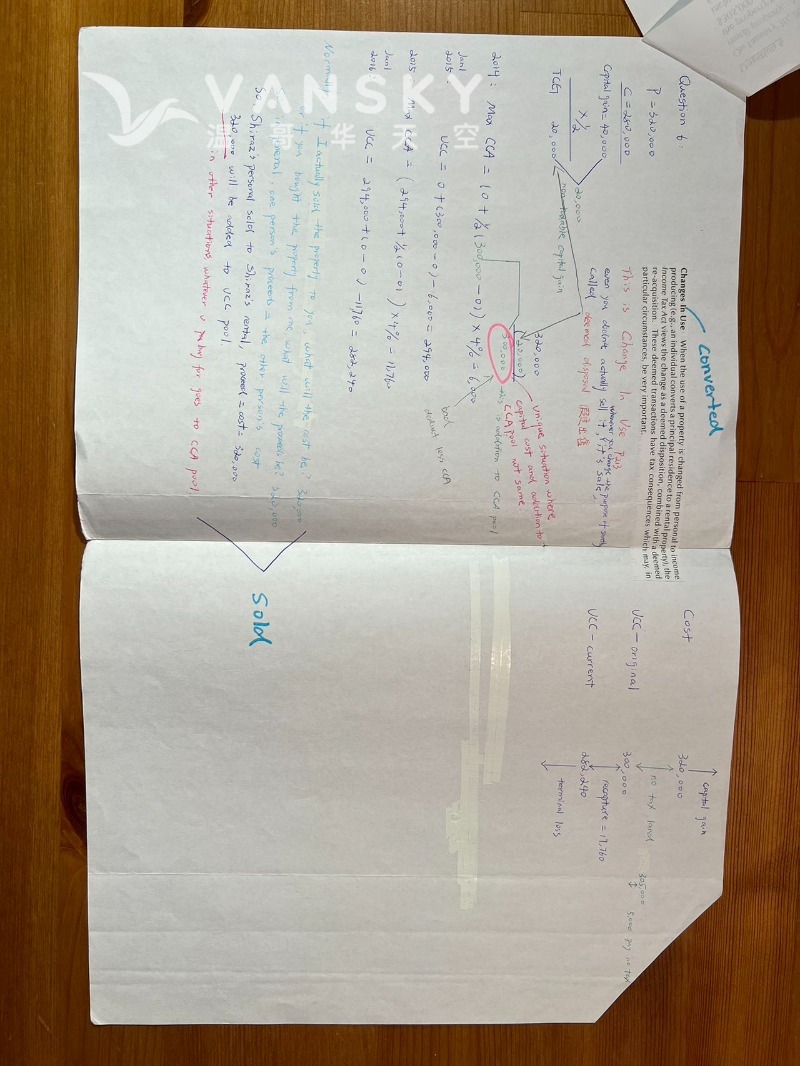 VANSKY
温哥华天空
Question 6:
P = 320,000
C = 280,000
Capital gain = 40,000
x 1/2
TCG 20,000
20,000
non-taxable capital gain
Converted
Changes In Use When the use of a property is changed from personal to income
producing (e.g., an individual converts a principal residence to a rental property), the
Income Tax Act views the change as a deemed disposition, combined with a deemed
re-acquisition. These deemed transactions have tax consequences which may, in
particular circumstances, be very important.
This is Change In Use
whenever you change the purpose of
even you didn't actually sell it, it's sale,
called deemed disposal
320,000
(20,000)
300,000
unique situation where
capital cost and addition to
CCA pool not same
is addition to CCA pool
2014: Max CCA = (0 + 1/2 (300,000 - 0)) x 4% = 6,000
Jan 1
2015: UCC = 0 + (300,000 - 0) - 6,000 = 294,000
2015: Max CCA = (294,000 + 1/2 (0 - 0)) x 4% = 11,760
Jan 1
2016: UCC = 294,000 + (0 - 0) - 11,760 = 282,240
Normally if I actually sold the property to you, what will the cost be? 320,000
or if you bought the property from me what will the proceeds be? 320,000
in general, one person's proceeds = the other person's cost
So, Shiraz's personal sold to Shiraz's rental, proceeds = cost = 320,000
320,000 will be added to UCC pool
in other situations, whatever u paying for goes to CCA pool
Sold
Cost
UCC - original
UCC - current
320,000
300,000
282,240
capital gain
no tax land
305,000
5,000 no tax
recapture = 17,760
terminal loss